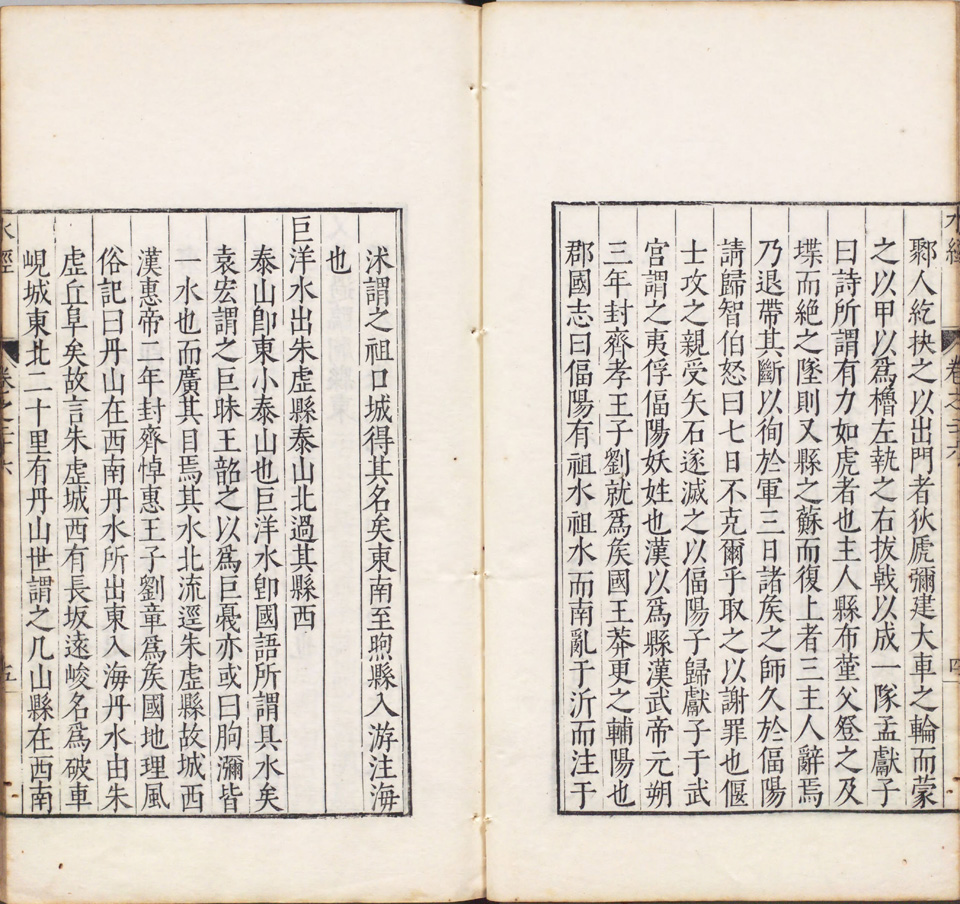 水經
卷之二十六
四
郰人紇抉之以出門者狄虒彌建大車之輪而蒙
之以甲以爲櫓左執之右拔戟以成一隊孟獻子
曰詩所謂有力如虎者也主人縣布堇父登之及
堞而絶之墜則又縣之蘇而復上者三主人辭焉
乃退帶其斷以徇於軍三日諸矦之師久於偪陽
請歸智伯怒曰七日不克爾乎取之以謝罪也偃
士攻之親受矢石遂滅之以偪陽子歸獻子于武
宮謂之夷俘偪陽妘姓也漢以爲縣漢武帝元朔
三年封齊孝王子劉就爲矦國王莽更之輔陽也
郡國志曰偪陽有祖水祖水而南亂于沂而注于
沭謂之祖口城得其名矣東南至朐縣入游注海
也
巨洋水出朱虛縣泰山北過其縣西
泰山卽東小泰山也巨洋水卽國語所謂具水矣
袁宏謂之巨昧王韶之以爲巨蔑亦或曰朐瀰皆
一水也而廣其目焉其水北流逕朱虛縣故城西
漢惠帝二年封齊悼惠王子劉章爲矦國地理風
俗記曰丹山在西南丹水所出東入海丹水由朱
虛丘阜矣故言朱虛城西有長坂遠峻名爲破車
峴城東北二十里有丹山世謂之凡山縣在西南
水經
卷之二十六
五